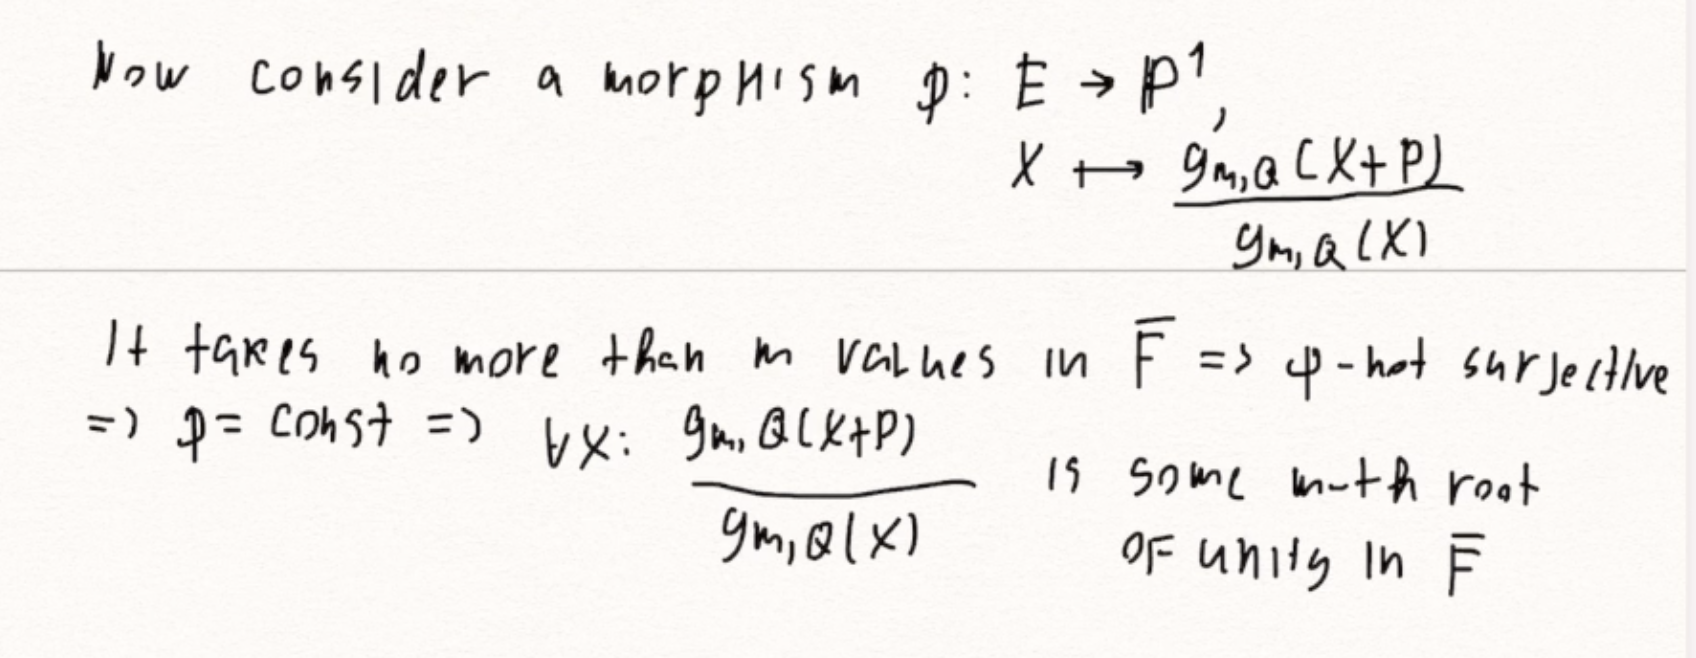 Now consider a morphism φ: E → ℙ¹,
X ↦ g_{m,Q}(X+P) / g_{m,Q}(X)
It takes no more than m values in F̄ => φ - not surjective
=> φ = const => ∀X: g_{m,Q}(X+P) / g_{m,Q}(X) is some m-th root
of unity in F̄